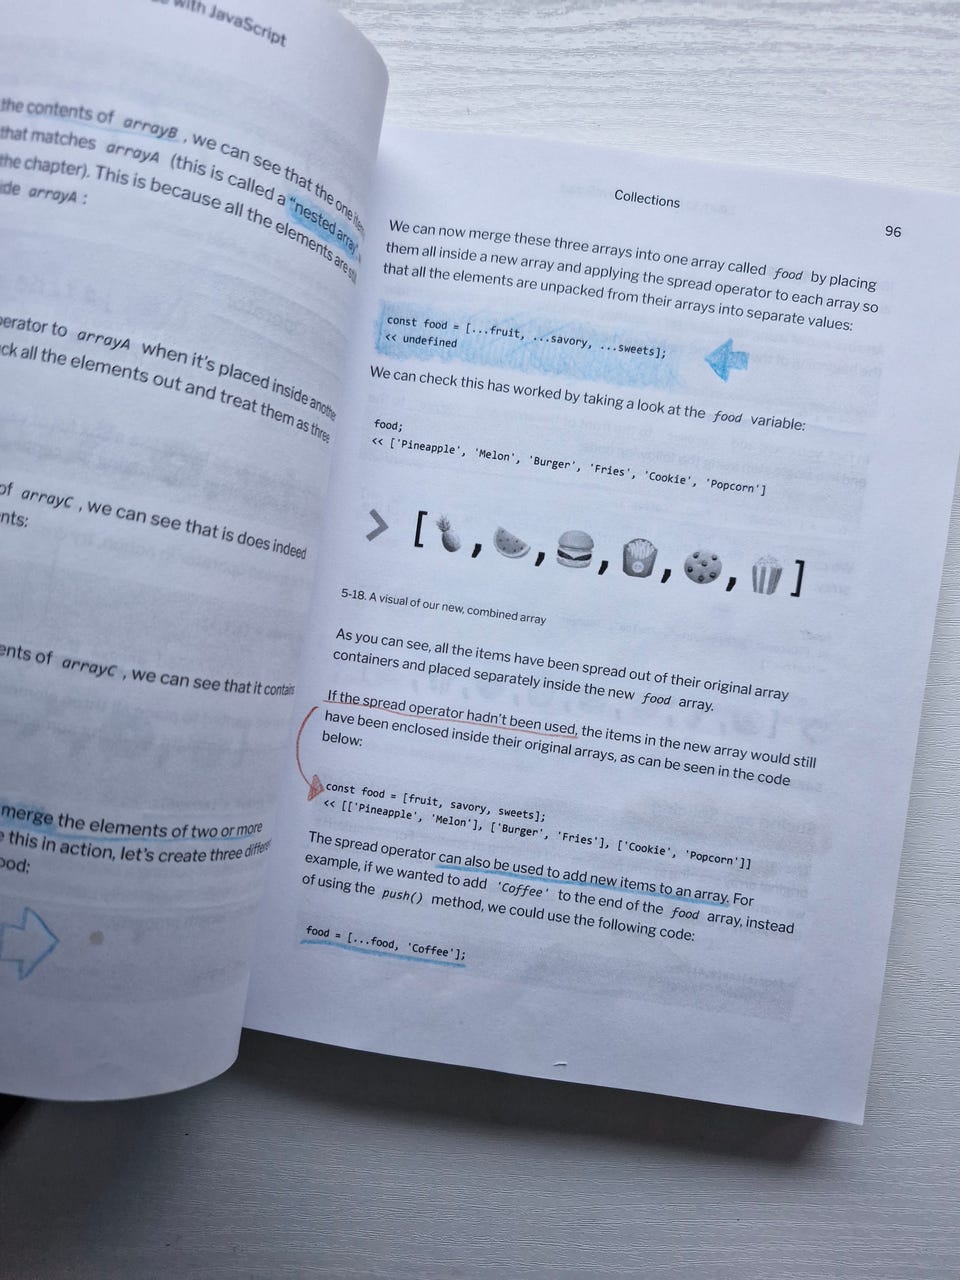 with JavaScript
the contents of arrayB, we can see that the one item
that matches arrayA (this is called a "nested array"
the chapter). This is because all the elements are still
arrayA:
operator to arrayA when it's placed inside another
all the elements out and treat them as three
of arrayC, we can see that is does indeed
of arrayC, we can see that it contains
merge the elements of two or more
this in action, let's create three different
Collections
96
We can now merge these three arrays into one array called food by placing
them all inside a new array and applying the spread operator to each array so
that all the elements are unpacked from their arrays into separate values:
const food = [...fruit, ...savory, ...sweets];
<< undefined
We can check this has worked by taking a look at the food variable:
food;
<< ['Pineapple', 'Melon', 'Burger', 'Fries', 'Cookie', 'Popcorn']
> [ , , , , , ]
5-18. A visual of our new, combined array
As you can see, all the items have been spread out of their original array
containers and placed separately inside the new food array.
If the spread operator hadn't been used, the items in the new array would still
have been enclosed inside their original arrays, as can be seen in the code
below:
const food = [fruit, savory, sweets];
<< [['Pineapple', 'Melon'], ['Burger', 'Fries'], ['Cookie', 'Popcorn']]
The spread operator can also be used to add new items to an array. For
example, if we wanted to add 'Coffee' to the end of the food array, instead
of using the push() method, we could use the following code:
food = [...food, 'Coffee'];